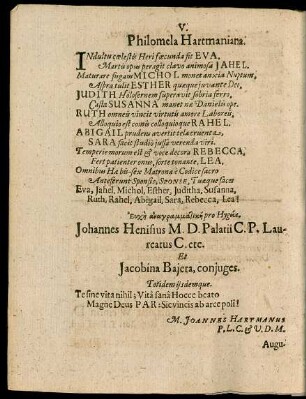 V.
Philomela Hartmaniana.
Indultu cœlesti Heri fœcunda fit EVA,
Martis opus peragit clavo animosa JAHEL.
Maturare fugam MICHOL monet anxia Nuptum,
Aspra tulit ESTHER quæque juvante Deo,
JUDITH Holofernem superavit sobria ferro,
Casta SUSANNA manet na Danielis ope.
RUTH omneis vincit virtutis amore Labores,
Alloquiis est comis colloquiisque RAHEL.
ABIGAIL prudens avertit tela cruenta,
SARA facit studiis justa verenda viri.
Temperie morum est & voce decora REBECCA,
Fert patienter onus, sorte tonante, LEA,
Omnibus Ha bis-sex Matronæ è Codice sacro
Anteferunt Sponsis, SPONSE, Tuæque faces
Eva, Jahel, Michol, Esther, Juditha, Susanna,
Ruth, Rahel, Abigail, Sara, Rebecca, Lea!
Ευχὴ ἀναγραμματικὴ pro Hygeia,
Johannes Henisius M. D. Palatii C. P. Lau-
reatus C. etc.
Et
Jacobina Bajera, conjuges.
Totidem ijsdemque.
Te sine vita nihil; Vitâ sanâ Hocce beato
Magne Deus PAR: Sic vincis ab arce poli!
M. JOANNES HARTMANUS
P. L. C. & V. D. M.
Augu-